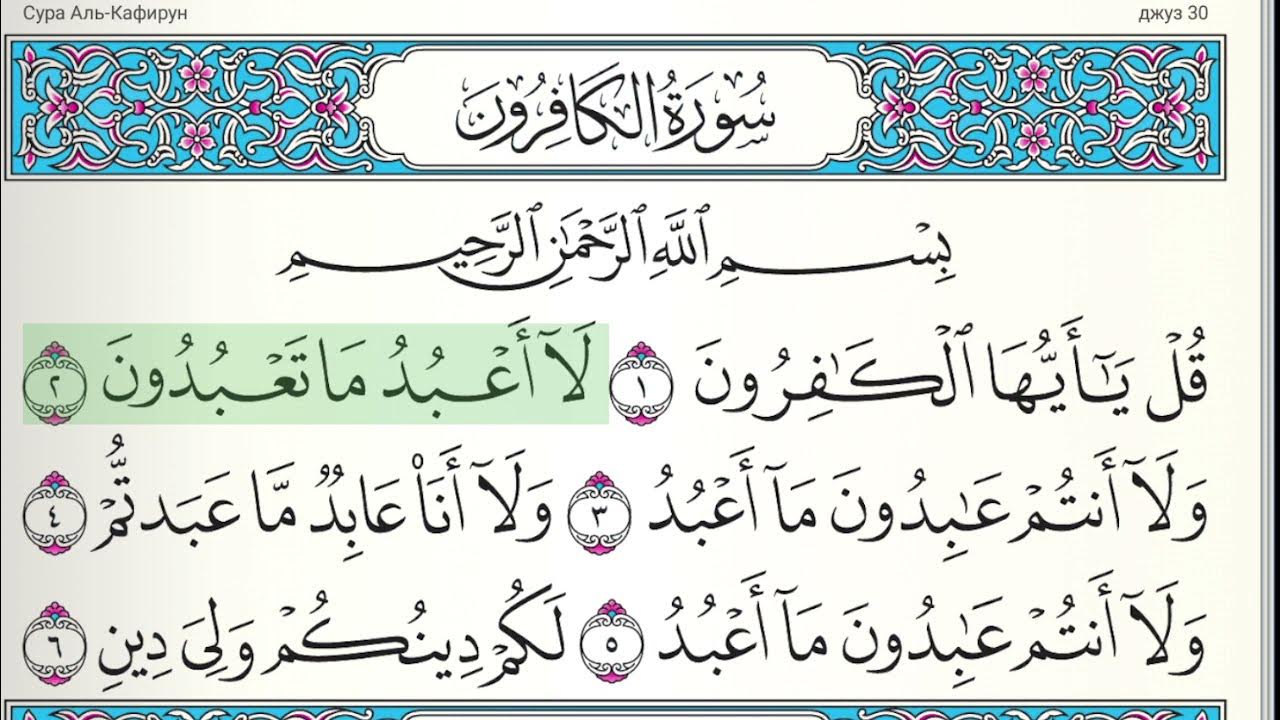 Сура Аль-Кафирун джуз 30
سُورَةُ الكَافِرُونَ
بِسْمِ ٱللَّهِ ٱلرَّحْمَٰنِ ٱلرَّحِيمِ
قُلْ يَٰٓأَيُّهَا ٱلْكَٰفِرُونَ ١ لَآ أَعْبُدُ مَا تَعْبُدُونَ ٢
وَلَآ أَنتُمْ عَٰبِدُونَ مَآ أَعْبُدُ ٣ وَلَآ أَنَا۠ عَابِدٌ مَّا عَبَدتُّمْ ٤
وَلَآ أَنتُمْ عَٰبِدُونَ مَآ أَعْبُدُ ٥ لَكُمْ دِينُكُمْ وَلِىَ دِينِ ٦